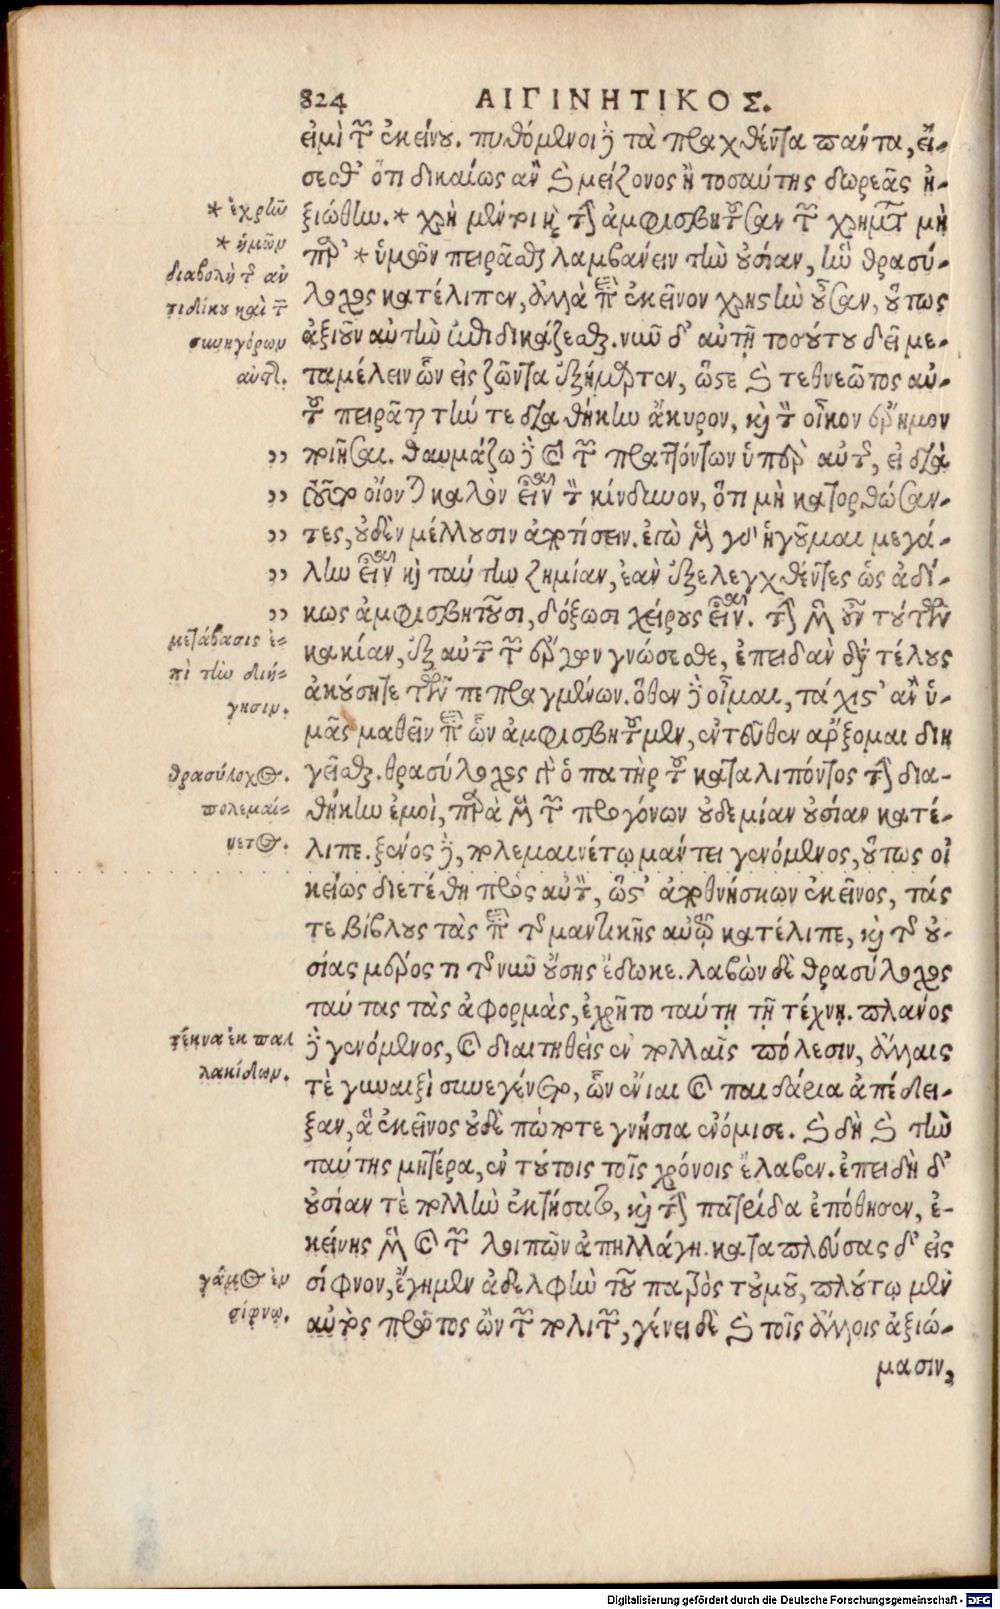 824 ΑΙΓΙΝΗΤΙΚΟΣ.
εἰμὶ τῶν ἐκείνου. πυθόμενοι δὲ τὰ πραχθέντα πάντα, εἴ-
σεσθ' ὅτι δικαίως ἂν καὶ μείζονος ἢ τοσαύτης δωρεᾶς ἠ-
* ἐχρῶ
ξιώθην. * χρὴ μέντοι καὶ τὴν ἀμφισβητοῦσαν τῶν χρημάτων μὴ
* ἡμῶν
παρ' * ὑμῶν πειρᾶσθαι λαμβάνειν τὴν οὐσίαν, ἣν θρασύ-
διαβολὴ τοῦ ἀν
τιδίκου καὶ τῶν
λοχος κατέλιπεν, ἀλλὰ περὶ ἐκεῖνον χρηστὴν οὖσαν, οὕτως
συνηγόρων
ἀξιοῦν αὐτὴν ἐπιδικάζεσθαι. νῦν δ' αὐτῇ τοσούτου δεῖ με-
αὐτοῦ.
ταμέλειν ὧν εἰς ζῶντα ἐξήμαρτεν, ὥστε καὶ τεθνεῶτος αὐ-
τοῦ πειρᾶται τήν τε διαθήκην ἄκυρον, καὶ τὸν οἶκον ἔρημον
" ποιῆσαι. θαυμάζω δὲ καὶ τῶν πραττόντων ὑπὲρ αὐτῆς, εἰ διὰ
" τοῦτο οἴονται καλὸν εἶναι τὸν κίνδυνον, ὅτι μὴ κατορθώσαν-
" τες, οὐδὲν μέλλουσιν ἀποτίσειν. ἐγὼ μὲν γὰρ ἡγοῦμαι μεγά-
" λην εἶναι καὶ ταύτην ζημίαν, ἐὰν ἐξελεγχθέντες ὡς ἀδί-
" κως ἀμφισβητοῦσι, δόξωσι χείρους εἶναι. τὴν μὲν οὖν τούτων
μετάβασις ἐ-
πὶ τὴν διή-
γησιν.
κακίαν, ἐξ αὐτῶν τῶν ἔργων γνώσεσθε, ἐπειδὰν διὰ τέλους
ἀκούσητε τῶν πεπραγμένων. ὅθεν δὲ οἶμαι, τάχιστ' ἂν ὑ-
μᾶς μαθεῖν περὶ ὧν ἀμφισβητοῦμεν, ἐντεῦθεν ἄρξομαι διη
θρασύλοχος.
γεῖσθαι. θρασύλοχος γὰρ ὁ πατὴρ τοῦ καταλιπόντος τὴν δια-
πολεμαί-
θήκην ἐμοὶ, παρὰ μὲν τῶν προγόνων οὐδεμίαν οὐσίαν κατέ-
νετος.
λιπε. ξένος δὲ, πολεμαινέτῳ μάντει γενόμενος, οὕτως οἰ
κείως διετέθη πρὸς αὐτὸν, ὥστ' ἀποθνήσκων ἐκεῖνος, τάς
τε βίβλους τὰς περὶ τῆς μαντικῆς αὐτῷ κατέλιπε, καὶ τῆς οὐ-
σίας μέρος τι τῆς νῦν οὔσης ἔδωκε. λαβὼν δὲ θρασύλοχος
ταύτας τὰς ἀφορμὰς, ἐχρῆτο ταύτῃ τῇ τέχνῃ. πλανός
τέκνα ἐκ παλ
λακίδων.
δὲ γενόμενος, καὶ διαιτηθεὶς ἐν πολλαῖς πόλεσιν, ἄλλαις
τὲ γυναιξὶ συνεγένετο, ὧν ἔνιαι καὶ παιδάρια ἀπέδει-
ξαν, ἃ ἐκεῖνος οὐδὲ πώποτε γνήσια ἐνόμισε. καὶ δὴ καὶ τὴν
ταύτης μητέρα, ἐν τούτοις τοῖς χρόνοις ἔλαβεν. ἐπειδὴ δ'
οὐσίαν τὲ πολλὴν ἐκτήσατο, καὶ τὴν πατρίδα ἐπόθησεν, ἐ-
κείνης μὲν καὶ τῶν λοιπῶν ἀπηλλάγη. καταπλεύσας δ' εἰς
γάμος ἐν
σίφνῳ.
σίφνον, ἔγημεν ἀδελφὴν τοῦ πατρὸς τοὐμοῦ, πλούτῳ μὲν
αὐτὸς πρῶτος ὢν τῶν πολιτῶν, γένει δὲ καὶ τοῖς ἄλλοις ἀξιώ-
μασιν,
Digitalisierung gefördert durch die Deutsche Forschungsgemeinschaft - DFG